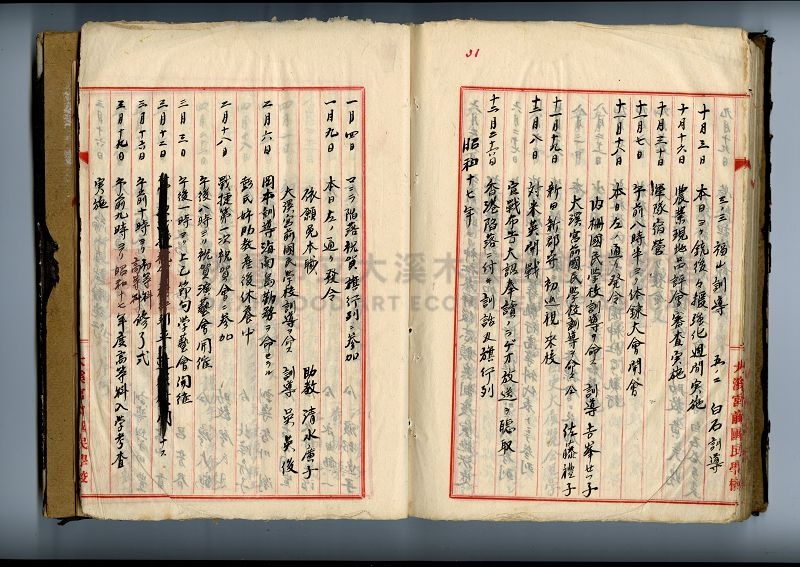 31
三ノ三 福山訓導 五ノ二 白石訓導
十月三日 本日ヨリ銃後々援強化週間実施
十月十六日 農業現地品評會審査実施
十月三十日 軍隊宿営
十一月七日 午前八時半ヨリ体錬大會開會
十一月八日 本日左ノ通リ発令
内柵國民學校訓導ヲ命ス 訓導 吉峯セツ子
大溪宮前國民學校訓導ヲ命ス 仝 佐藤禮子
十一月十九日 新田新郡守初巡視来校
十二月八日 対米英開戦
宣戦布告大詔奉讀(ラヂオ放送)ヲ聴取
十二月二十六日 香港陥落ニ付キ訓話及旗行列
昭和十七年
大溪宮前國民學校
一月四日 ロニラ陥落祝賀旗行列ニ参加
一月九日 本日左ノ通リ発令
依願免本職 助教 清水庚子
大溪宮前國民學校訓導ヲ命ス 訓導 吴奠俊
二月六日 岡本訓導海南島勤務ヲ命セラル
彭氏好助教産後休養中
二月十八日 戦捷第一次祝賀會ニ参加
午後八時ヨリ祝賀演藝會開催
三月三日 午後一時ヨリ上巳節句学藝會開催
三月十二日
三月十六日 午前十時ヨリ高等科修了式
三月十九日 午前九時ヨリ昭和十七年度高等科入學考査
実施
大溪宮前國民學校
大溪木
WOOD ART ECOM